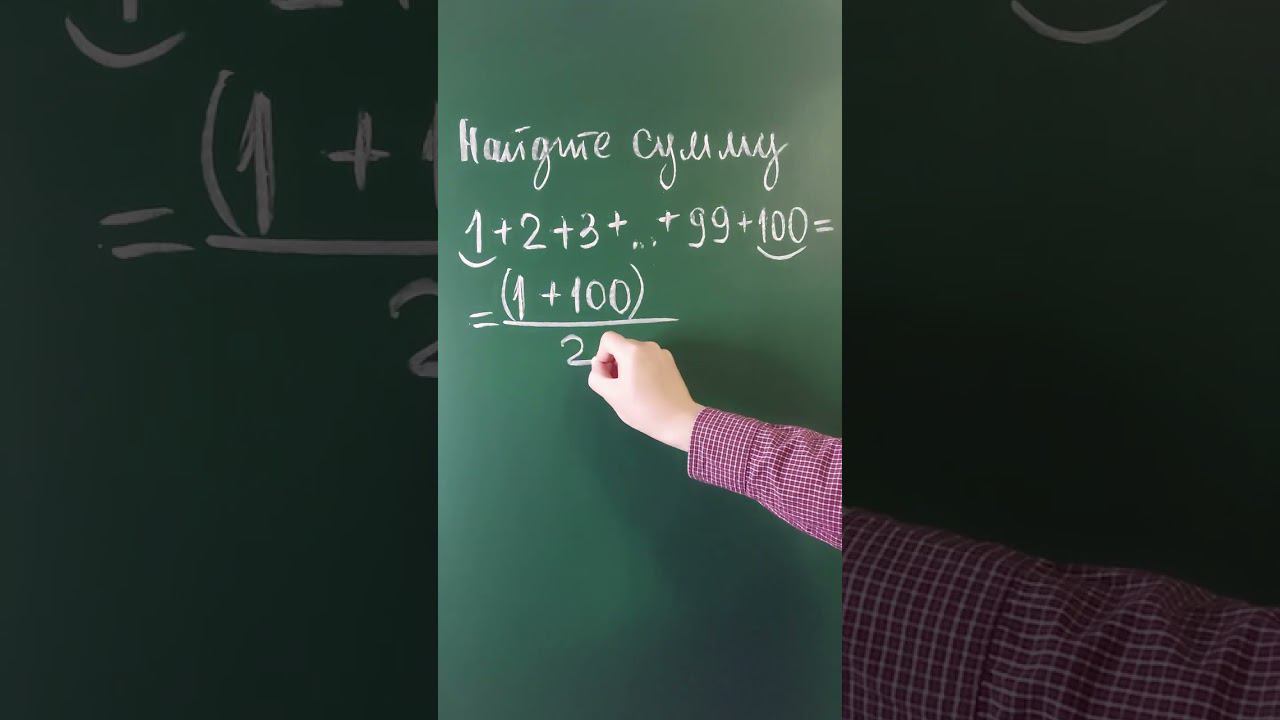 Найдите сумму
1+2+3+...+99+100=
=(1+100)
2